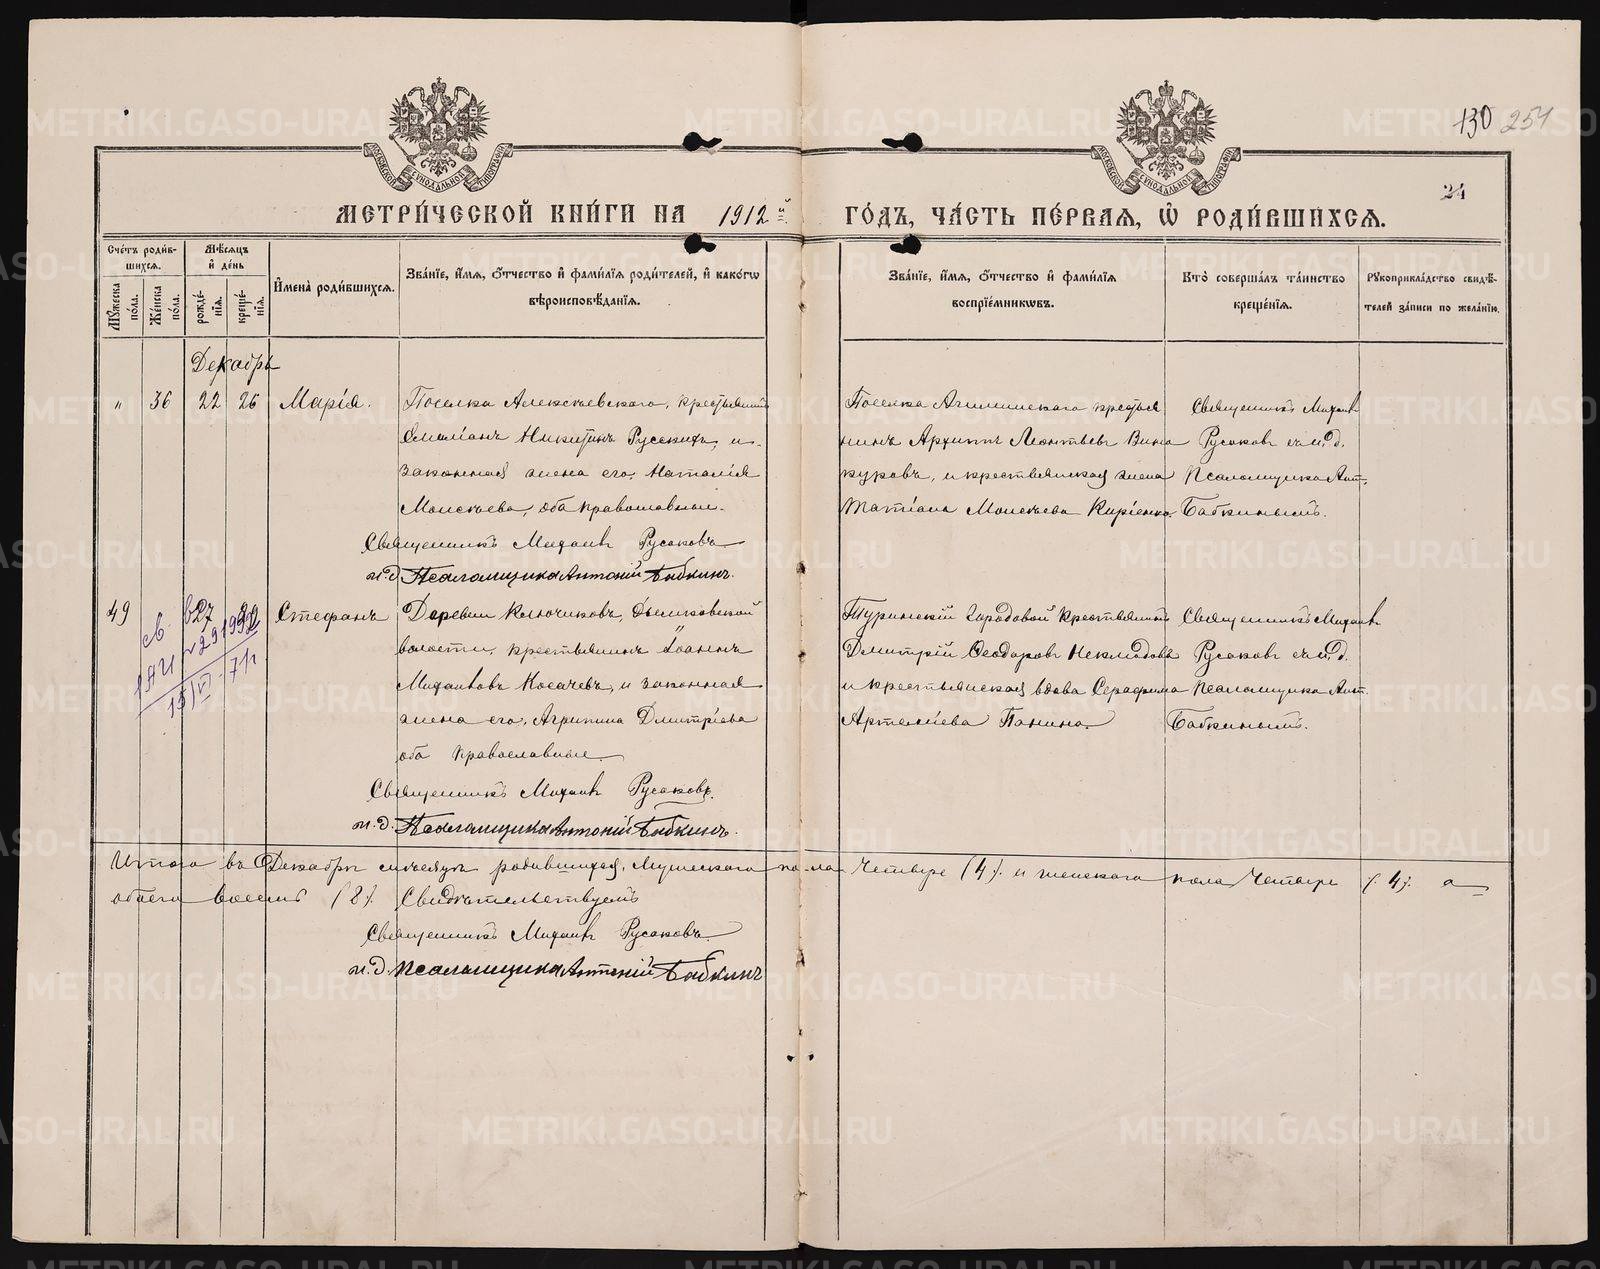 130 254
24
МОСКОВСКОЙ СУНОДАЛЬНОЙ ТИПОГРАФІИ
МОСКОВСКОЙ СУНОДАЛЬНОЙ ТИПОГРАФІИ
МЕТРИ́ЧЕСКОЙ КНИ́ГИ НА 1912й ГО́ДЪ, ЧА́СТЬ ПЕ́РВАЯ, Ѡ РОДИ́ВШИХСЯ.
Сче́тъ роди́в-
шихся.
Мѣ́сяцъ
и де́нь
Му́жеска по́ла.
Же́нска по́ла.
рожде́-
нія.
креще́-
нія.
Имена̀ роди́вшихся.
Зва́ніе, и́мя, о́тчество и фами́лія роди́телей, и како́гѡ
вѣроисповѣ́данія.
Зва́ніе, и́мя, о́тчество и фами́лія
воспрїе́мникѡвъ.
Кто̀ соверша́лъ та́инство
креще́нія.
Рꙋкоприкла́дство свидѣ́-
телей за́писи по жела́нію.
Декабрь
" 36 22 26 Марія.
Поселка Алексѣевскаго, крестьянинъ
Емиліанъ Никитинъ Русскихъ, и
законная жена его, Наталія
Моисѣева, оба православные.
Священникъ Михаилъ Русаковъ
и.д. Псаломщика Антоній Бабкинъ.
Поселка крестья
нинъ Архиппъ Леонтьевъ Вино
куровъ, и крестьянская жена
Татіана Моисѣева Киріенко.
Священникъ Михаилъ
Русаковъ съ и.д.
Псаломщика Ант.
Бабкинымъ.
49 27 Стефанъ
Деревни Ключиковъ,
волости, крестьянинъ Іоаннъ
Михаиловъ Косачевъ, и законная
жена его, Агрипина Димитріева
оба православные.
Священникъ Михаилъ Русаковъ.
и.д. Псаломщика Антоній Бабкинъ.
Туринскій Городовой крестьянинъ
Димитрій Ѳеодоровъ Неклюдовъ
и крестьянская вдова Серафима
Артеміева Панина.
Священникъ Михаилъ
Русаковъ съ и.д.
Псаломщика Ант.
Бабкинымъ.
15/VI-71г
Итого въ Декабрѣ мѣсяцѣ родившихся, Мужескаго пола Четверо (4). и женскаго пола Четверо (4). а
обоего восемь (8). Свидѣтельствуемъ
Священникъ Михаилъ Русаковъ.
и.д. Псаломщика Антоній Бабкинъ
METRIKI.GASO-URAL.RU